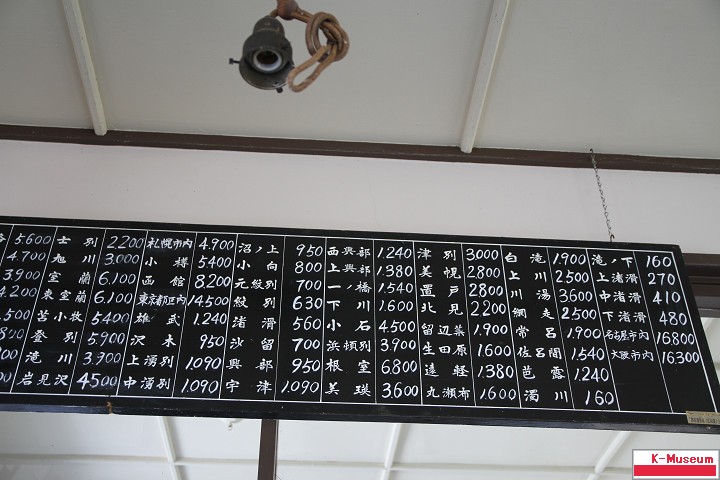 5.600
4.700
3.900
4.200
士別 2.200
旭川 3.000
室蘭 6.100
東室蘭 6.100
苫小牧 5400
登別 5.900
滝川 3.900
岩見沢 4500
札幌市内 4.900
小樽 5400
函館 8.200
東京都区内 14.500
雄武 1.240
沢木 950
上湧別 1.090
中湧別 1.090
沼ノ上 950
小向 800
元紋別 700
紋別 630
渚滑 560
沙留 700
興部 950
宇津 1.090
西興部 1.240
上興部 1.380
一ノ橋 1.540
下川 1.600
小石 4.500
浜頓別 3.900
根室 6.800
美瑛 3.600
津別 3000
美幌 2800
置戸 2800
北見 2200
留辺蘂 1.900
生田原 1.600
遠軽 1380
丸瀬布 1.600
白滝 1.900
上川 2.500
川湯 3600
網走 2.500
常呂 1.900
佐呂間 1.540
芭露 1.240
濁川 160
滝ノ下 160
上渚滑 270
中渚滑 410
下渚滑 480
名古屋市内 16800
大阪市内 16300
K-Museum